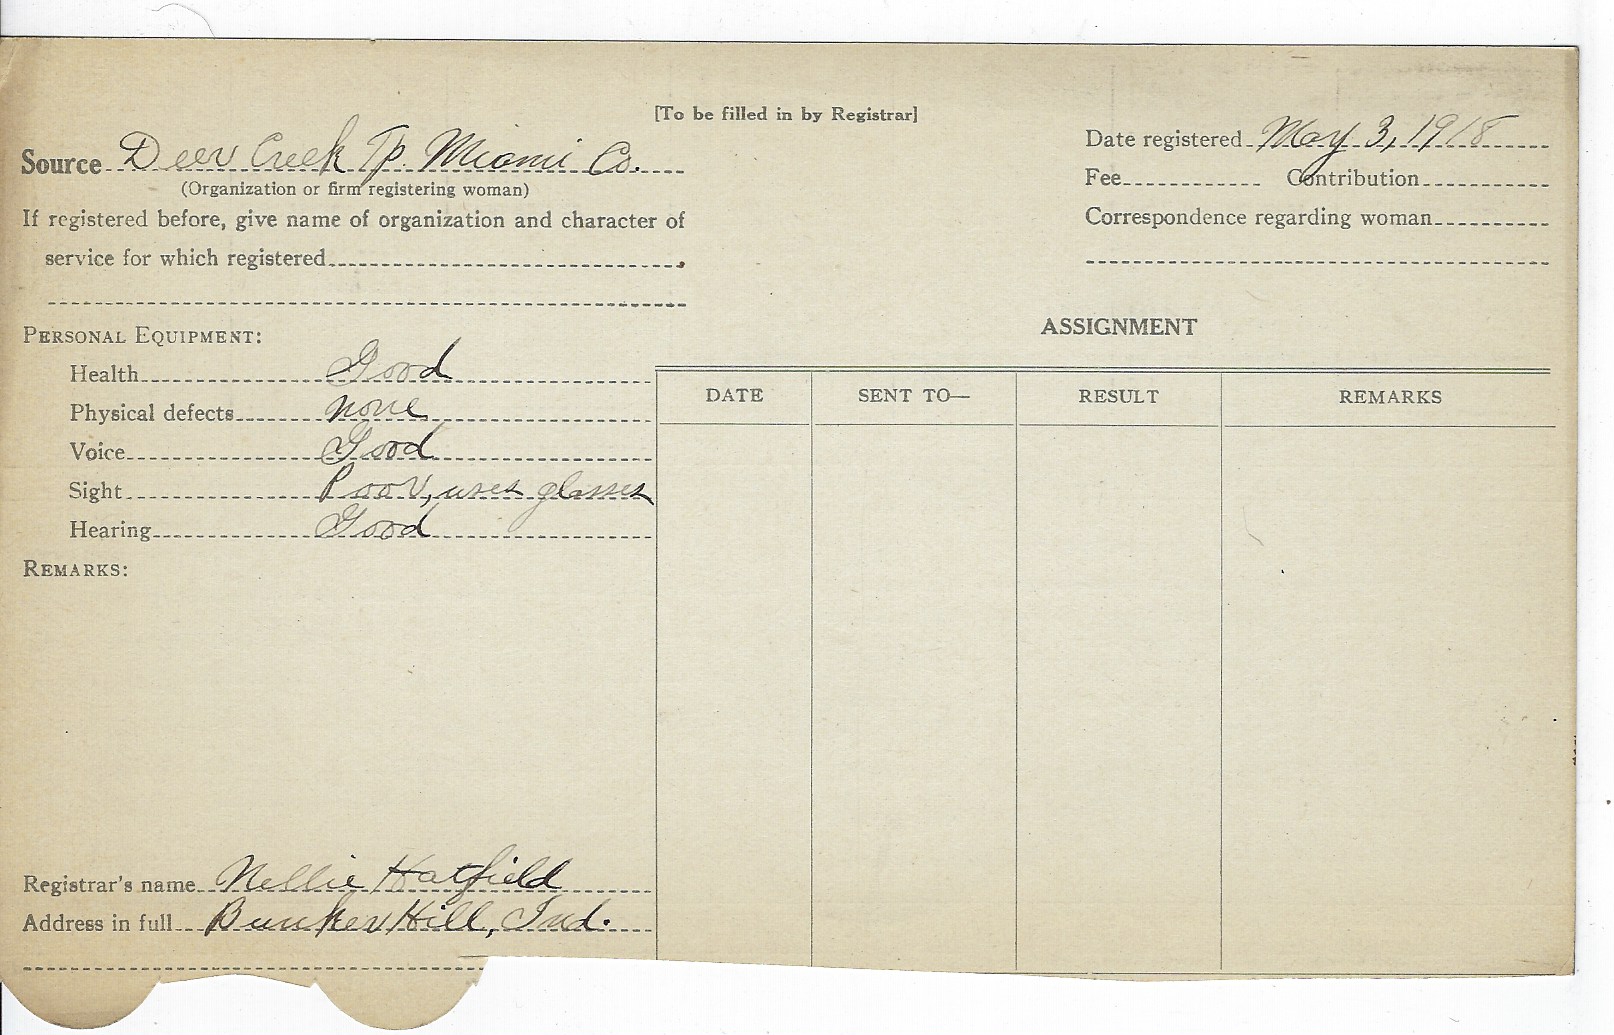 [To be filled in by Registrar]
Source Deer Creek Tp. Miami Co.
(Organization or firm registering woman)
If registered before, give name of organization and character of
service for which registered
Date registered May 3, 1918
Fee Contribution
Correspondence regarding woman
PERSONAL EQUIPMENT:
Health Good
Physical defects none
Voice Good
Sight Poor, uses glasses
Hearing Good
REMARKS:
ASSIGNMENT
DATE SENT TO— RESULT REMARKS
Registrar's name Nellie Hatfield
Address in full Bunker Hill, Ind.